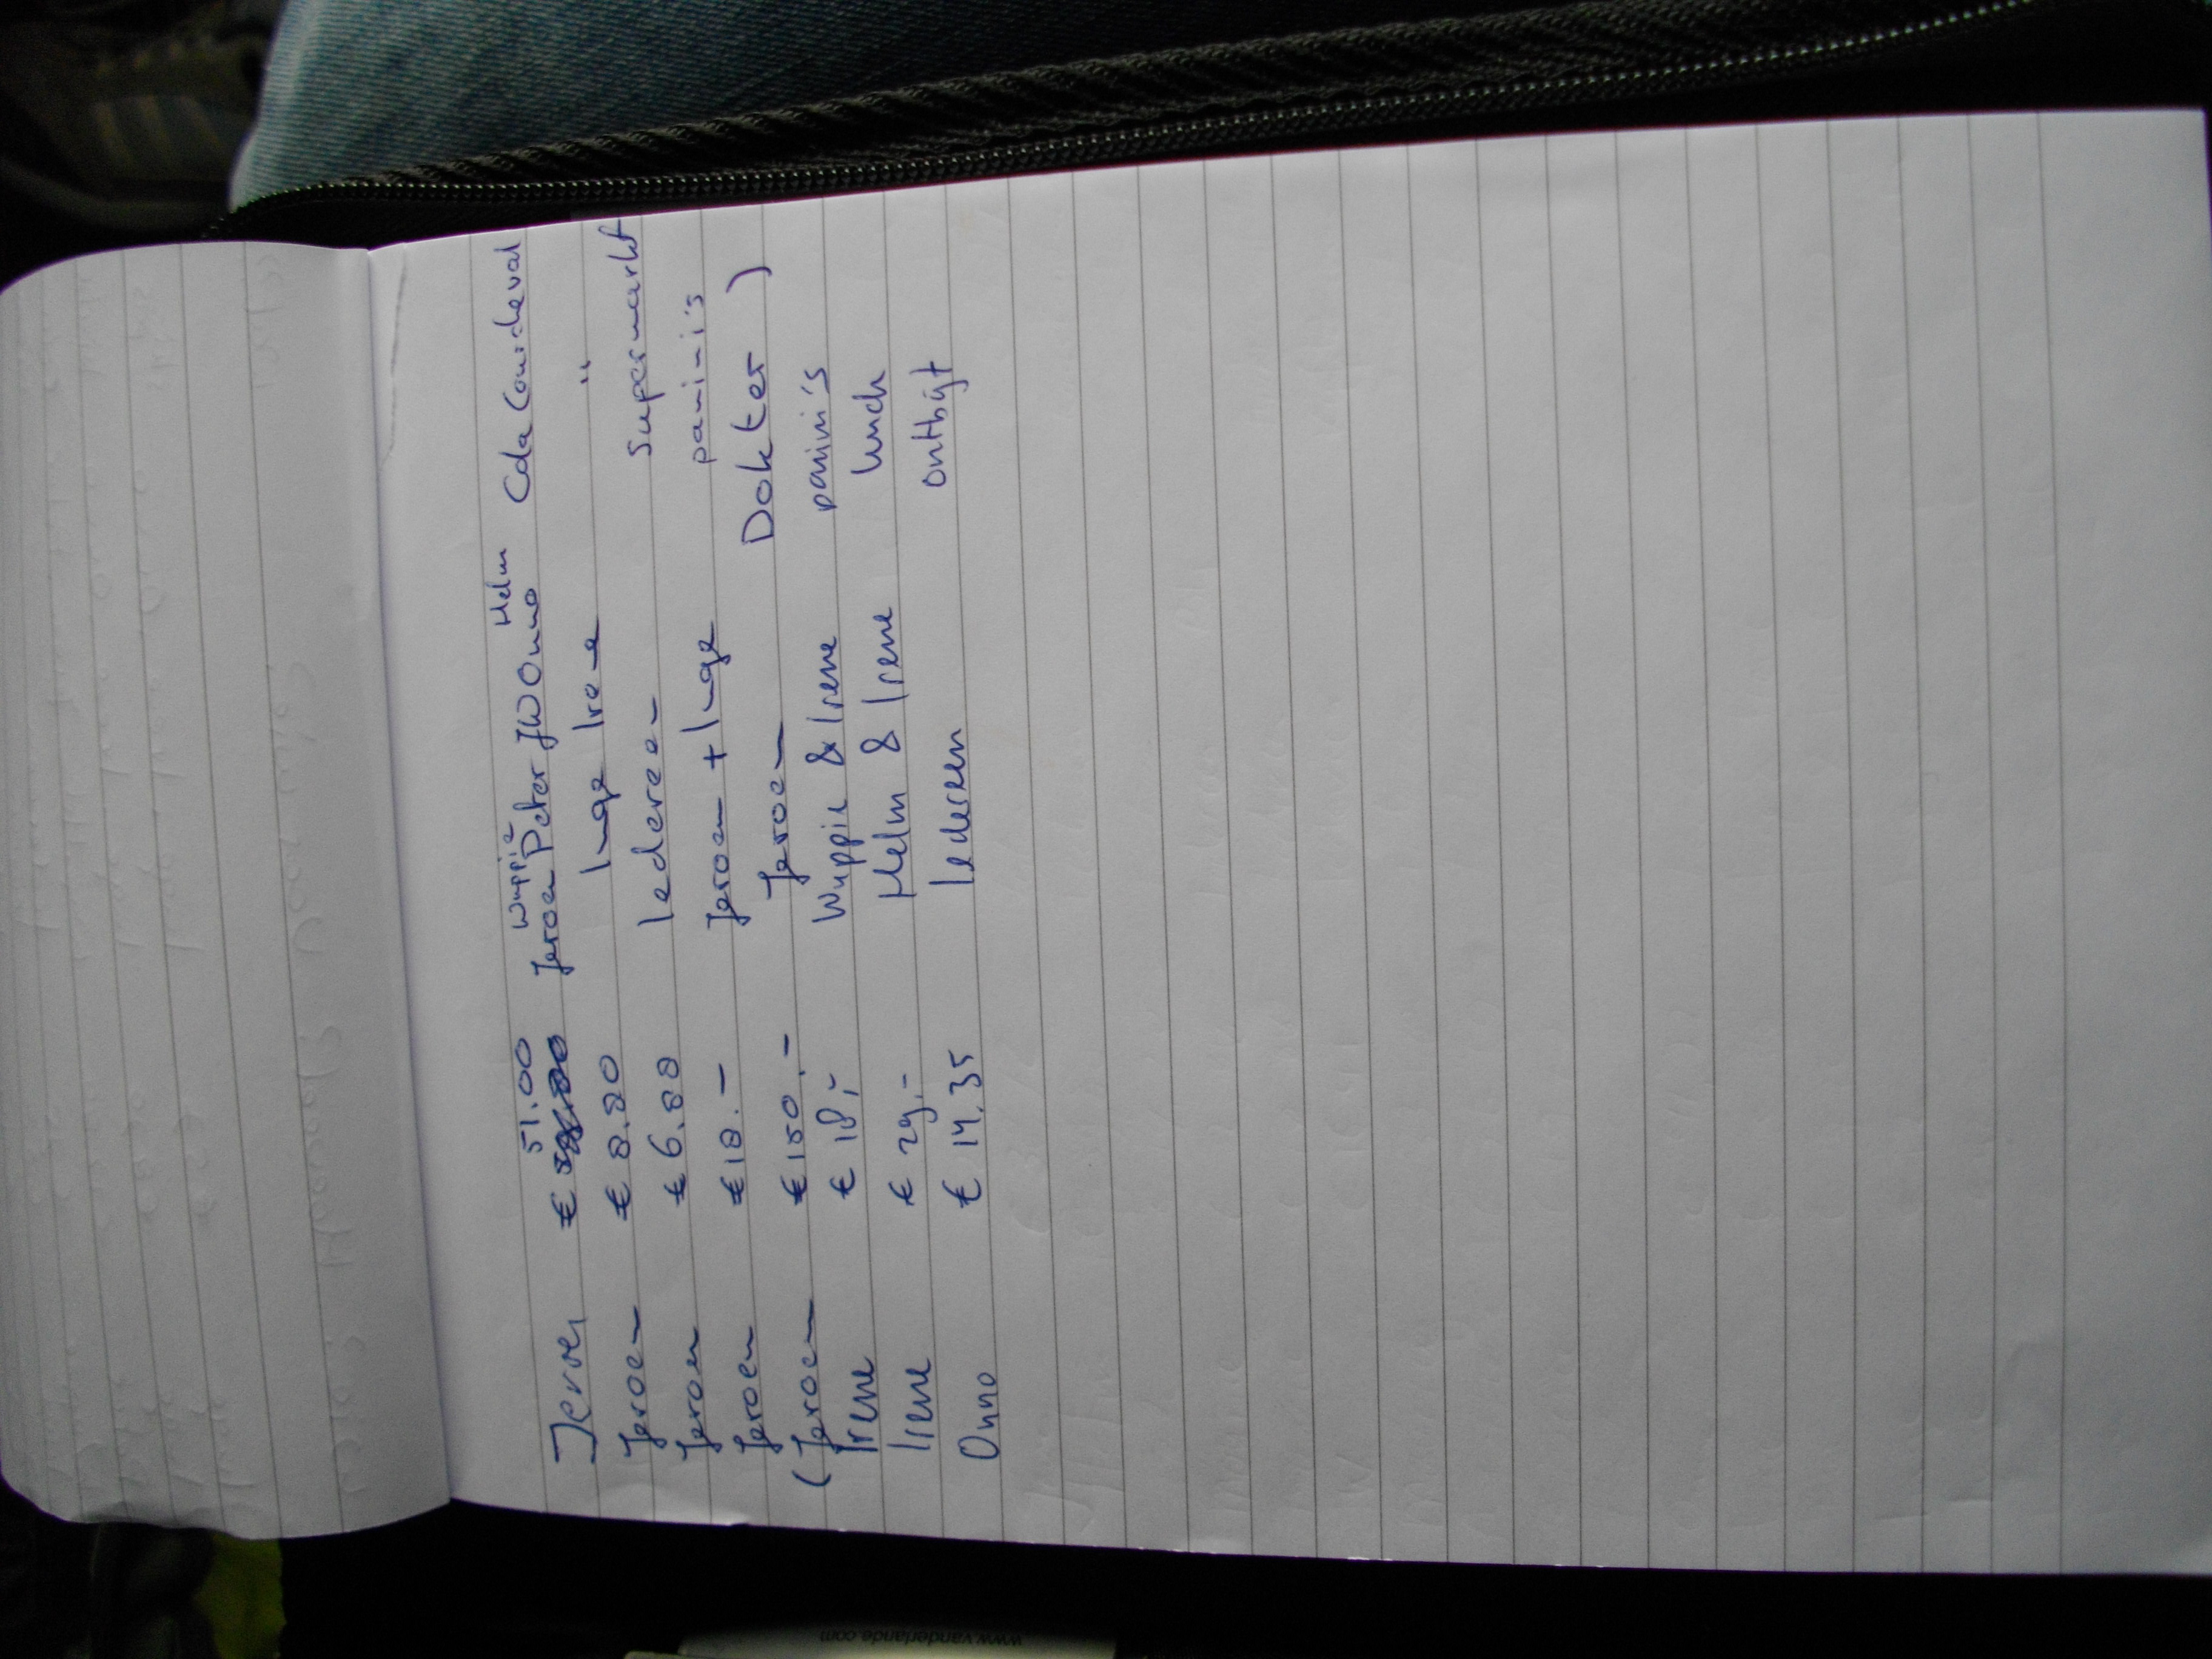 Wuppie Helm
Jeroen € 51.00 Jeroen Peter JW Onno Cola Courcheval
Jeroen € 8.80 Inge Irene "
Jeroen € 6.88 Iedereen Supermarkt
Jeroen € 18.- Jeroen + Inge panini's
(Jeroen € 150,- Jeroen Dokter )
Irene € 18,- Wuppie & Irene panini's
Irene € 29,- Helm & Irene lunch
Onno € 14.35 Iedereen ontbijt
www.vanderlande.com